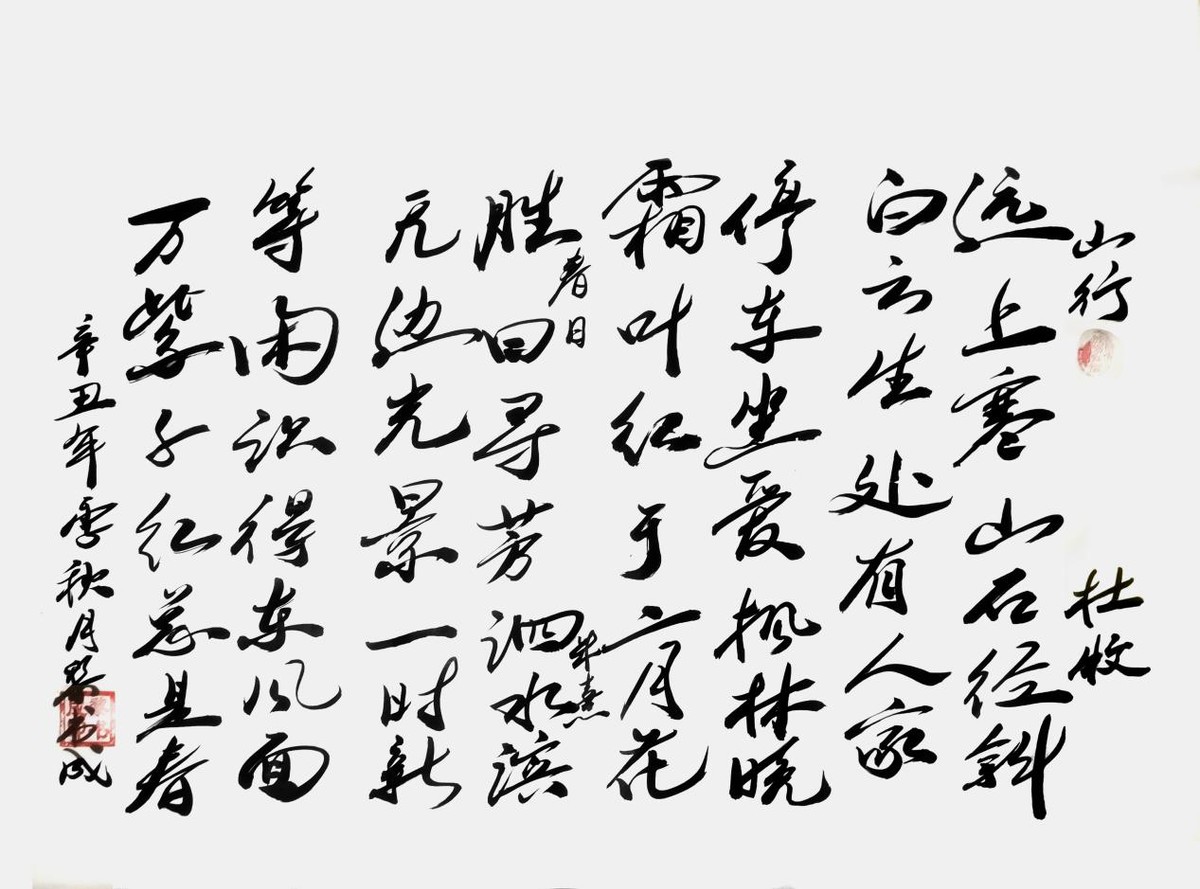 山行 杜牧
远上寒山石径斜
白云生处有人家
停车坐爱枫林晓
霜叶红于二月花
春日 朱熹
胜日寻芳泗水滨
无边光景一时新
等闲识得东风面
万紫千红总是春
辛丑年季秋月书成